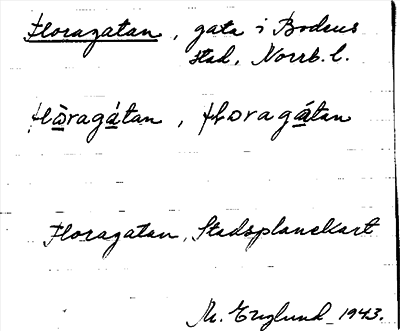 Floragatan, gata i Bodens
stad, Norrb. l.
Flòragátan, Floragátan
Floragatan, Stadsplanekart
M. Englund 1943.